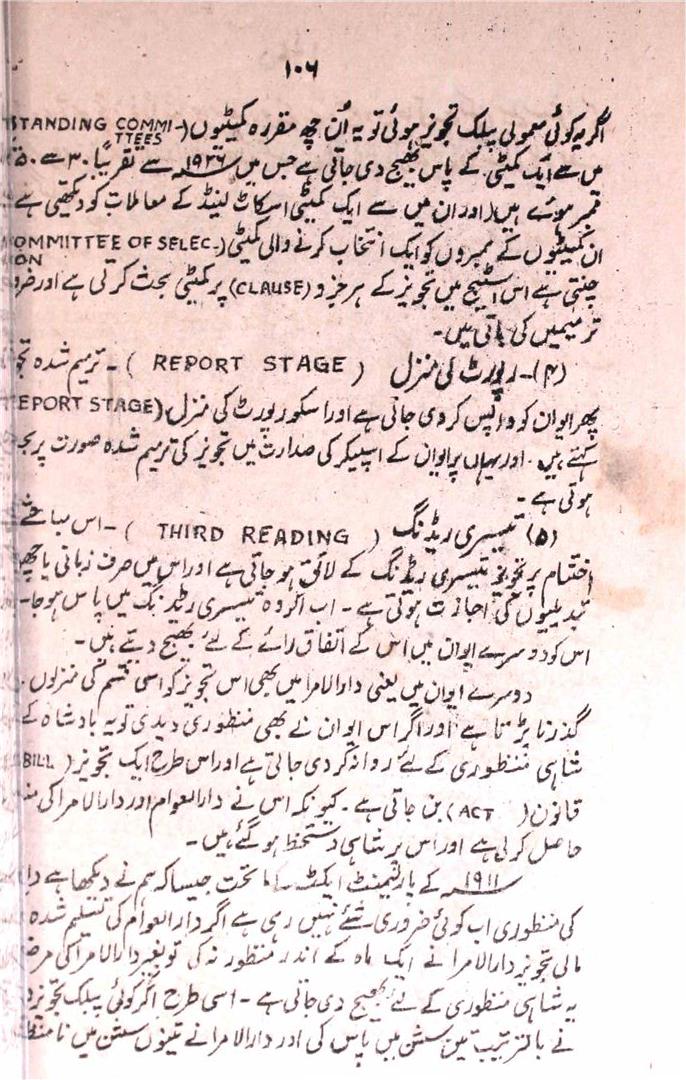 ۱۰۶
اگر یہ کوئی معمولی پبلک تجویز ہوئی تو یہ اُن چھ مقررہ کمیٹیوں (STANDING COMMI-
TTEES
میں سے ایک کمیٹی کے پاس بھیج دی جاتی ہے جس میں ۱۹۲۶ء سے تقریباً ۳۰ سے ۵۰
ممبر ہوتے ہیں (اور ان میں سے ایک کمیٹی اسکاٹ لینڈ کے معاملات کو دیکھتی ہے
ان کمیٹیوں کے ممبروں کو ایک انتخاب کرنے والی کمیٹی (OMMITTEE OF SELEC-
ION
چنتی ہے اس اسٹیج میں تجویز کے ہر جزو (CLAUSE) پر کمیٹی بحث کرتی ہے اور
ترمیمیں کی جاتی ہیں۔
(۴)۔ رپورٹ کی منزل (REPORT STAGE)۔ ترمیم شدہ
پھر ایوان کو واپس کر دی جاتی ہے اور اسکو رپورٹ کی منزل (REPORT STAGE)
کہتے ہیں۔ اور یہاں پر ایوان کے اسپیکر کی صدارت میں تجویز کی ترمیم شدہ صورت پر
ہوتی ہے۔
(۵) تیسری ریڈنگ (THIRD READING)۔ اس مباحثے
اختتام پر تجویز تیسری ریڈنگ کے لائق ہو جاتی ہے اور اس میں صرف زبانی یا
تبدیلیوں کی اجازت ہوتی ہے۔ اب اگر وہ تیسری ریڈنگ میں پاس ہو جا۔
اس کو دوسرے ایوان میں اس کے اتفاق رائے کے لئے بھیج دیتے ہیں۔
دوسرے ایوان میں یعنی دارالامرا میں بھی اس تجویز کو اسی قسم کی منزلوں
گذرنا پڑتا ہے اور اگر اس ایوان نے بھی منظوری دیدی تو یہ بادشاہ کے
شاہی منظوری کے لئے روانہ کر دی جاتی ہے اور اس طرح ایک تجویز (BILL
قانون (ACT) بن جاتی ہے۔ کیونکہ اس نے دارالعوام اور دارالامرا کی
حاصل کر لی ہے اور اس پر شاہی دستخط ہو گئے ہیں۔
۱۹۱۱ء کے پارلیمنٹ ایکٹ کے ماتحت جیسا کہ ہم نے دیکھا ہے
کی منظوری اب کوئی ضروری شئے نہیں رہی ہے اگر دارالعوام کی تسلیم شدہ
مالی تجویز دارالامرا نے ایک ماہ کے اندر منظور نہ کی تو بغیر دارالامرا کی
یہ شاہی منظوری کے لئے بھیج دی جاتی ہے۔ اسی طرح اگر کوئی پبلک تجویز
نے بالترتیب تین سشن میں پاس کی اور دارالامرا نے تینوں سشن میں